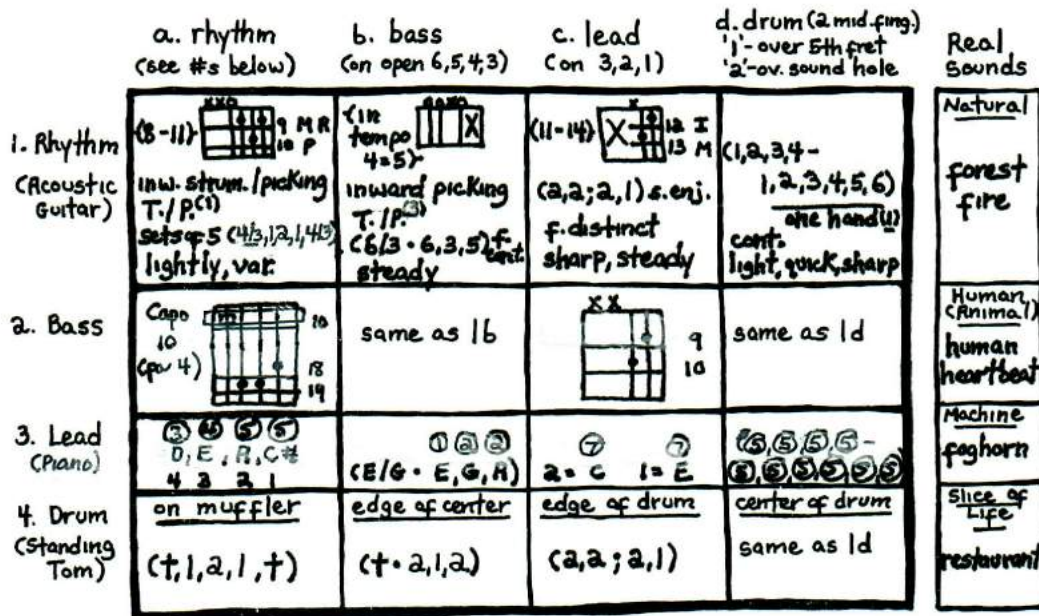 a. rhythm
(see #s below)
b. bass
(on open 6,5,4,3)
c. lead
(on 3,2,1)
d. drum (2 mid. fing.)
'1'- over 5th fret
'2'-ov. sound hole
Real
Sounds
1. Rhythm
(Acoustic
Guitar)
(8-11)
xxo
9 M R
10 P
inw. strum./picking
T./P.(1)
sets of 5 (4/3,1,2,1,4/3)
lightly, var.
(in
tempo
4=5)
X
inward picking
T./P.(3)
(6/3 · 6,3,5) f.
cont.
steady
(11-14)
x
X
12 I
13 M
(2,2; 2,1) s. enj.
f. distinct
sharp, steady
(1,2,3,4-
1,2,3,4,5,6)
one hand(1)
cont.
light, quick, sharp
Natural
forest
fire
2. Bass
Capo
10
(pov 4)
10
18
19
same as 1b
X X
9
10
same as 1d
Human,
(Animal)
human
heartbeat
3. Lead
(Piano)
3 4 5 5
D, E, A, C#
4 3 2 1
1 2 2
(E/G · E, G, A)
7 7
2 = C 1 = E
5, 5, 5, 5 -
5, 5, 5, 5, 5, 5
Machine
foghorn
4. Drum
(Standing
Tom)
on muffler
(t,1,2,1,t)
edge of center
(t · 2,1,2)
edge of drum
(2,2; 2,1)
center of drum
same as 1d
Slice of
Life
restaurant